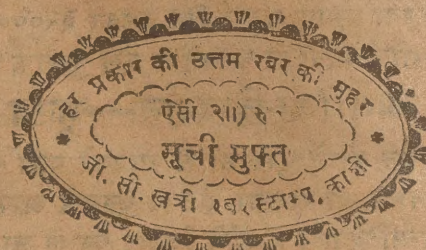 हर प्रकार की उत्तम रबर की मुहर
ऐसी २॥) रु.
सूची मुफ्त
जी. सी. खत्री रबर स्टाम्प. काशी